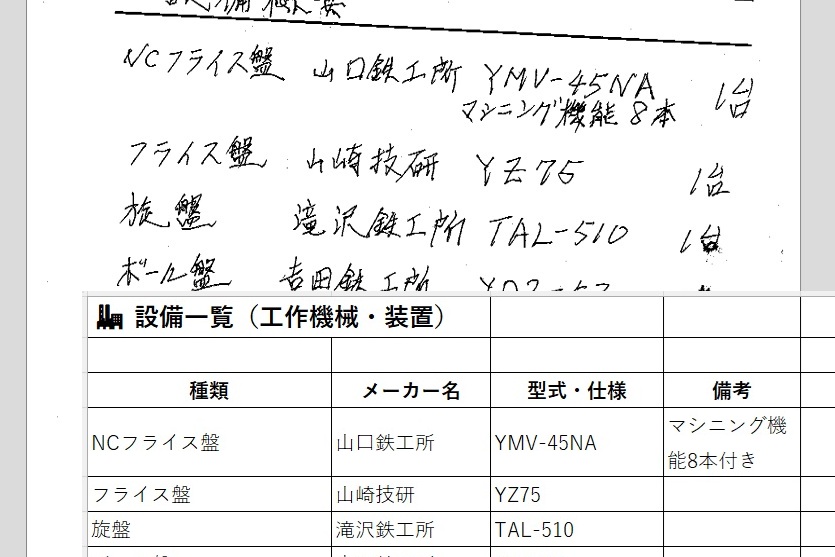 設備概要
NCフライス盤 山口鉄工所 YMV-45NA 1台
マシニング機能 8本
フライス盤 山崎技研 YZ75 1台
旋盤 滝沢鉄工所 TAL-510 1台
ボール盤 吉田鉄工所
設備一覧（工作機械・装置）
種類 メーカー名 型式・仕様 備考
NCフライス盤 山口鉄工所 YMV-45NA マシニング機
能8本付き
フライス盤 山崎技研 YZ75
旋盤 滝沢鉄工所 TAL-510